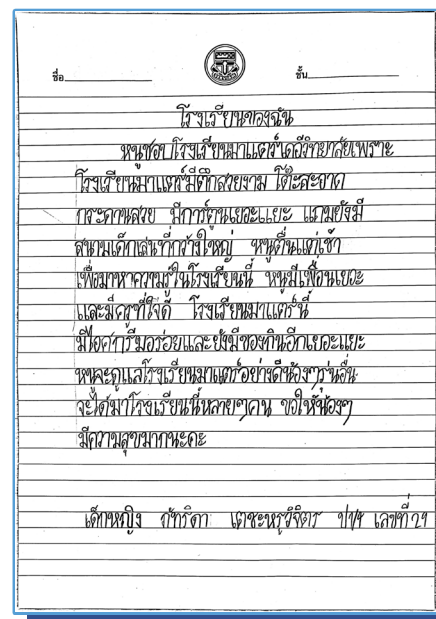 ชื่อ ชั้น
โรงเรียนของฉัน
หนูชอบโรงเรียนมาแตร์เดอีวิทยาลัยเพราะ
โรงเรียนมาแตร์มีตึกสวยงาม โต๊ะสะอาด
กระดานสวย มีการ์ตูนเยอะแยะ แถมยังมี
สนามเด็กเล่นที่กว้างใหญ่ หนูตื่นแต่เช้า
เพื่อมาหาความรู้ในโรงเรียนนี้ หนูมีเพื่อนเยอะ
และมีครูที่ใจดี โรงเรียนมาแตร์นี้
มีไอศกรีมอร่อยและยังมีของกินอีกเยอะแยะ
หนูจะดูแลโรงเรียนมาแตร์อย่างดีน้องๆรุ่นอื่น
จะได้มาโรงเรียนนี้หลายๆคน ขอให้น้องๆ
มีความสุขมากนะคะ
เด็กหญิง ภัทริดา เตชะหรูวิจิตร เลขที่ 29